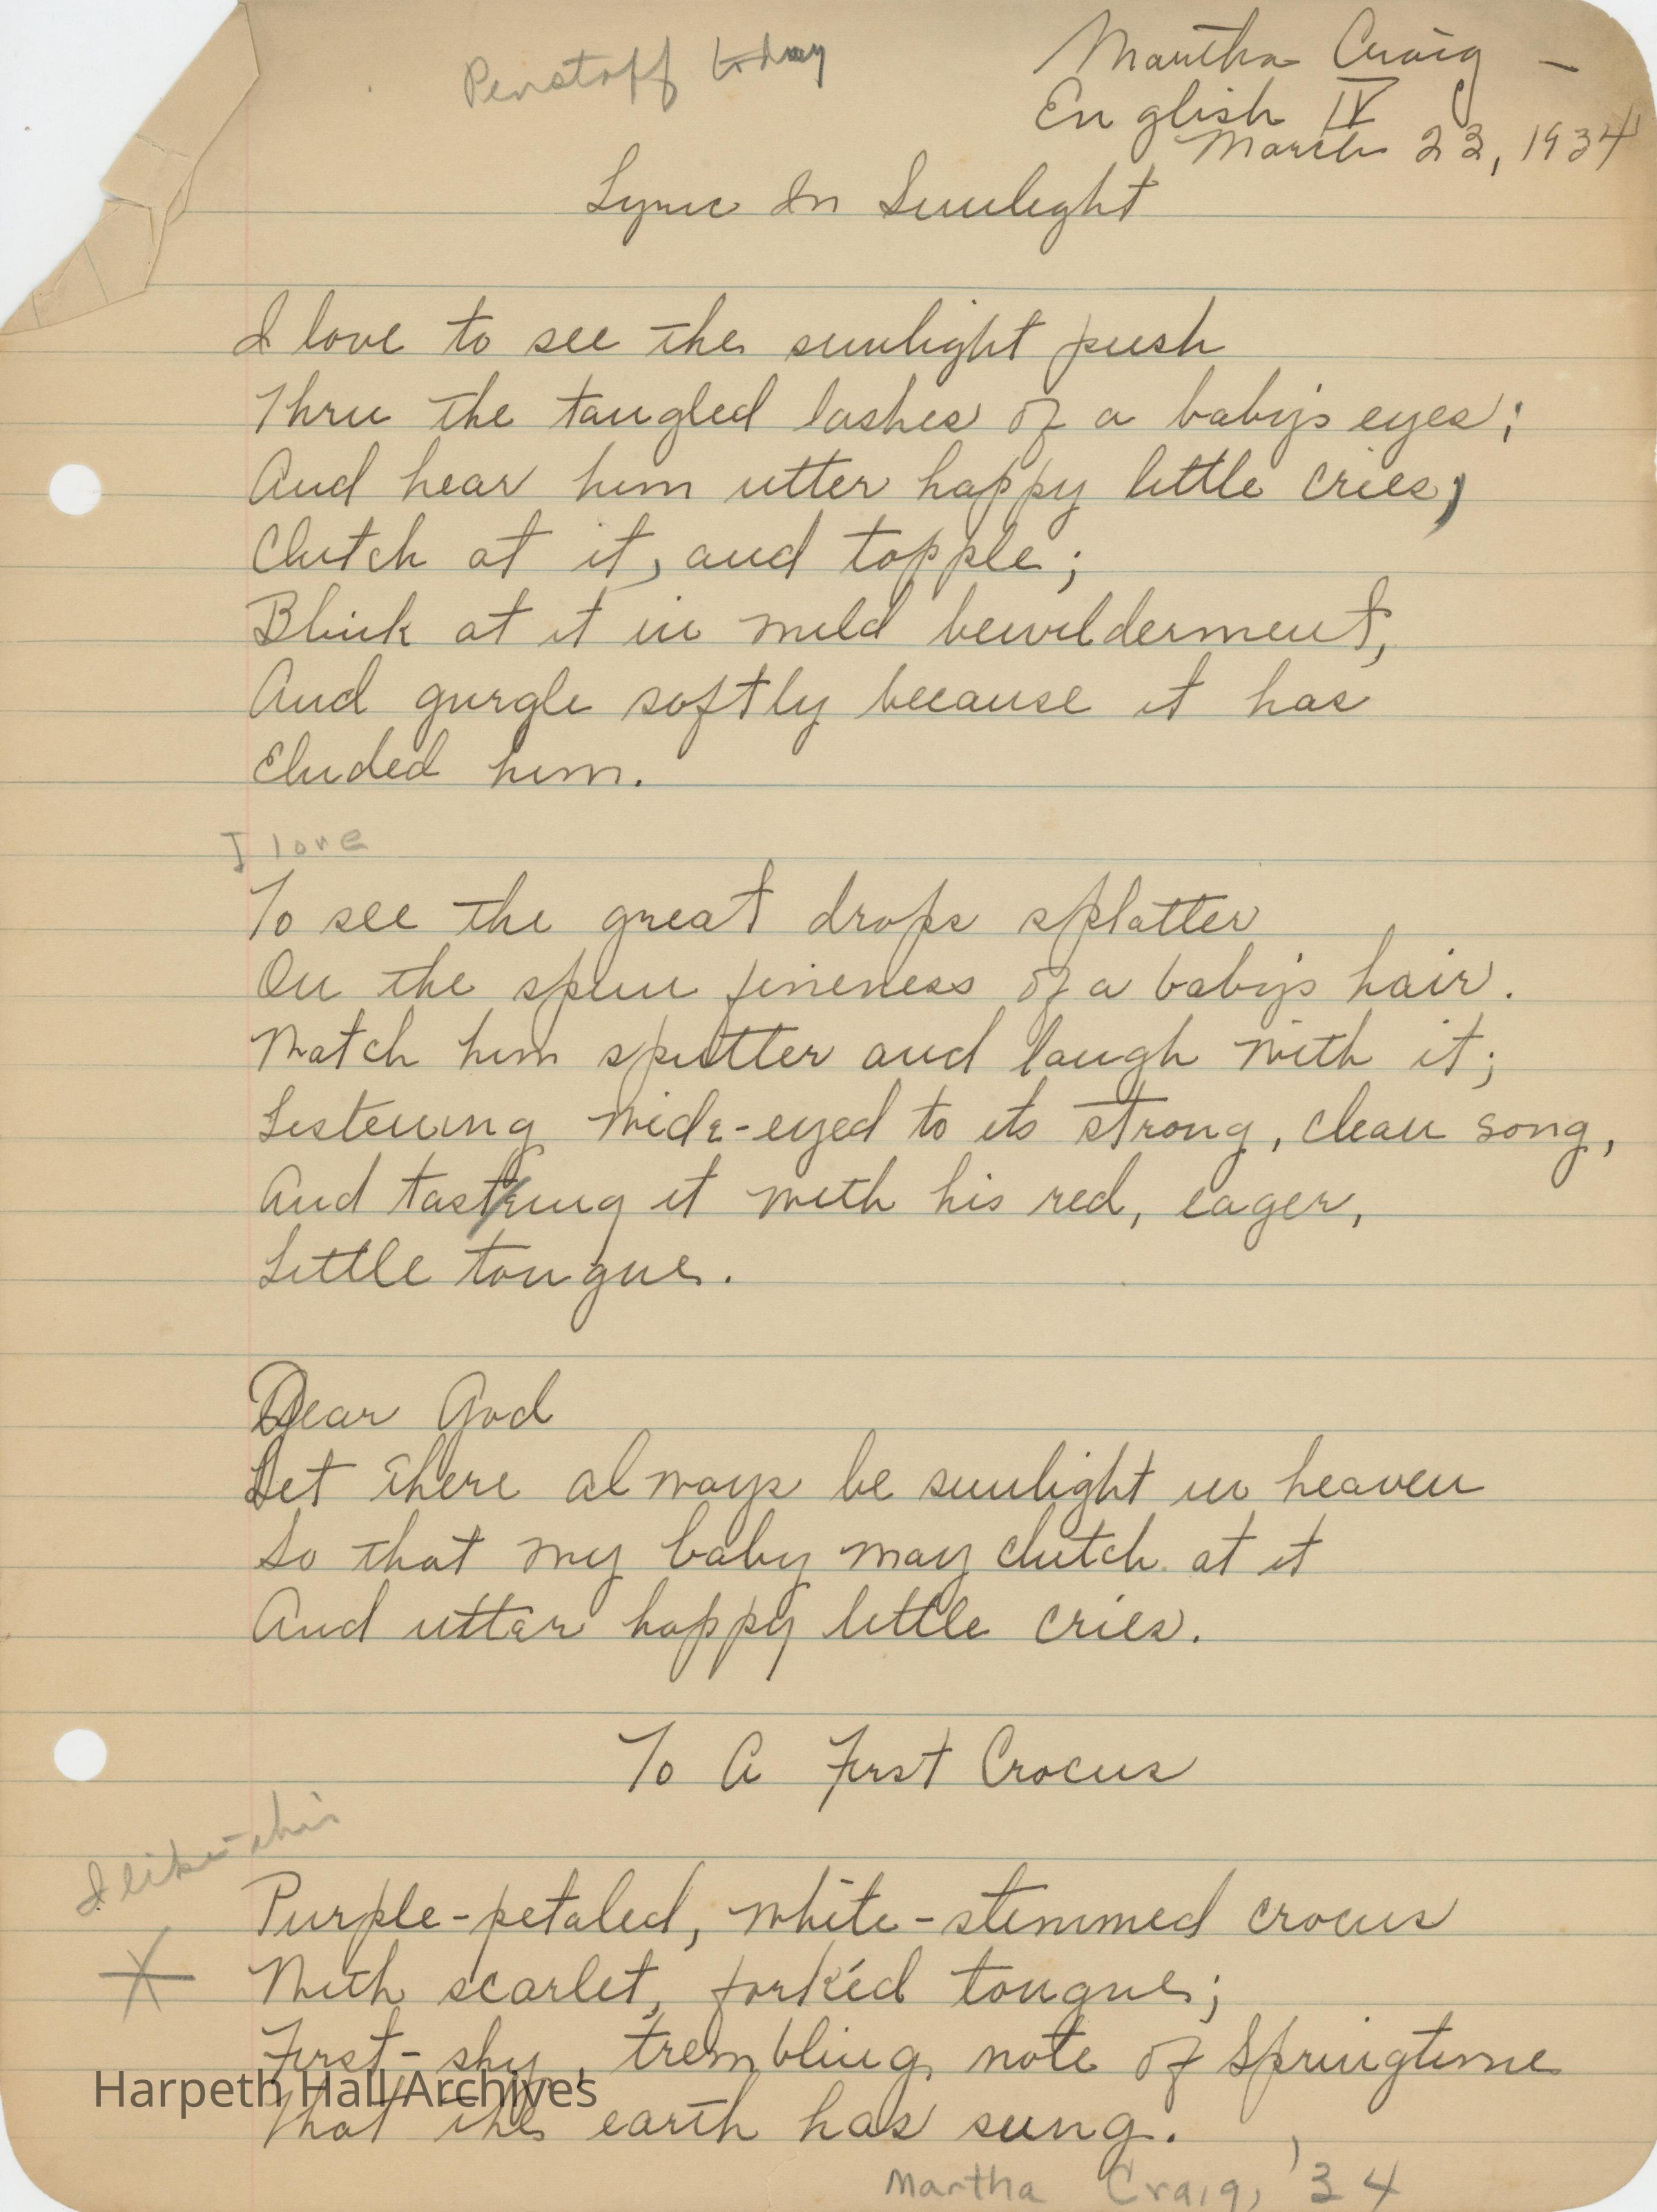 Penstaff today
Martha Craig -
English IV
March 23, 1934
Lyric In Sunlight
I love to see the sunlight push
Thru the tangled lashes of a baby's eyes;
And hear him utter happy little cries;
Clutch at it, and topple;
Blink at it in mild bewilderment,
And gurgle softly because it has
Eluded him.
I love
To see the great drops splatter
On the spun fineness of a baby's hair.
Watch him sputter and laugh with it;
Listening wide-eyed to its strong, clean song,
And tasting it with his red, eager,
Little tongue.
Dear God
Let there always be sunlight in heaven
So that my baby may clutch at it
And utter happy little cries.
To A First Crocus
I like this
Purple-petaled, white-stemmed crocus
With scarlet, forkéd tongue;
First-shy, trembling note of Springtime
That the earth has sung.
Harpeth Hall Archives
Martha Craig, '34